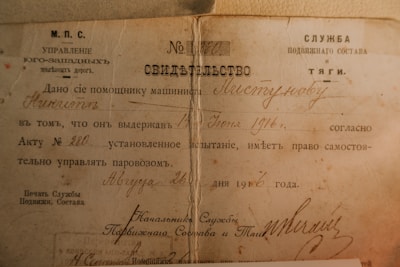 М. П. С.
УПРАВЛЕНІЕ
ЮГО-ЗАПАДНЫХ
желѣзныхъ дорогъ.
СЛУЖБА
ПОДВИЖНАГО СОСТАВА
И
ТЯГИ.
№
СВИДѢТЕЛЬСТВО
Дано сіе помощнику машиниста Пистунову
Никитѣ
въ томъ, что онъ выдержалъ Іюня 1916 г. согласно
Акту № 280 установленное испытаніе, имѣетъ право самостоя-
тельно управлять паровозомъ.
Августа 26 дня 1916 года.
Печать Службы
Подвижн. Состава.
Начальникъ Службы
Подвижнаго Состава и Тяги